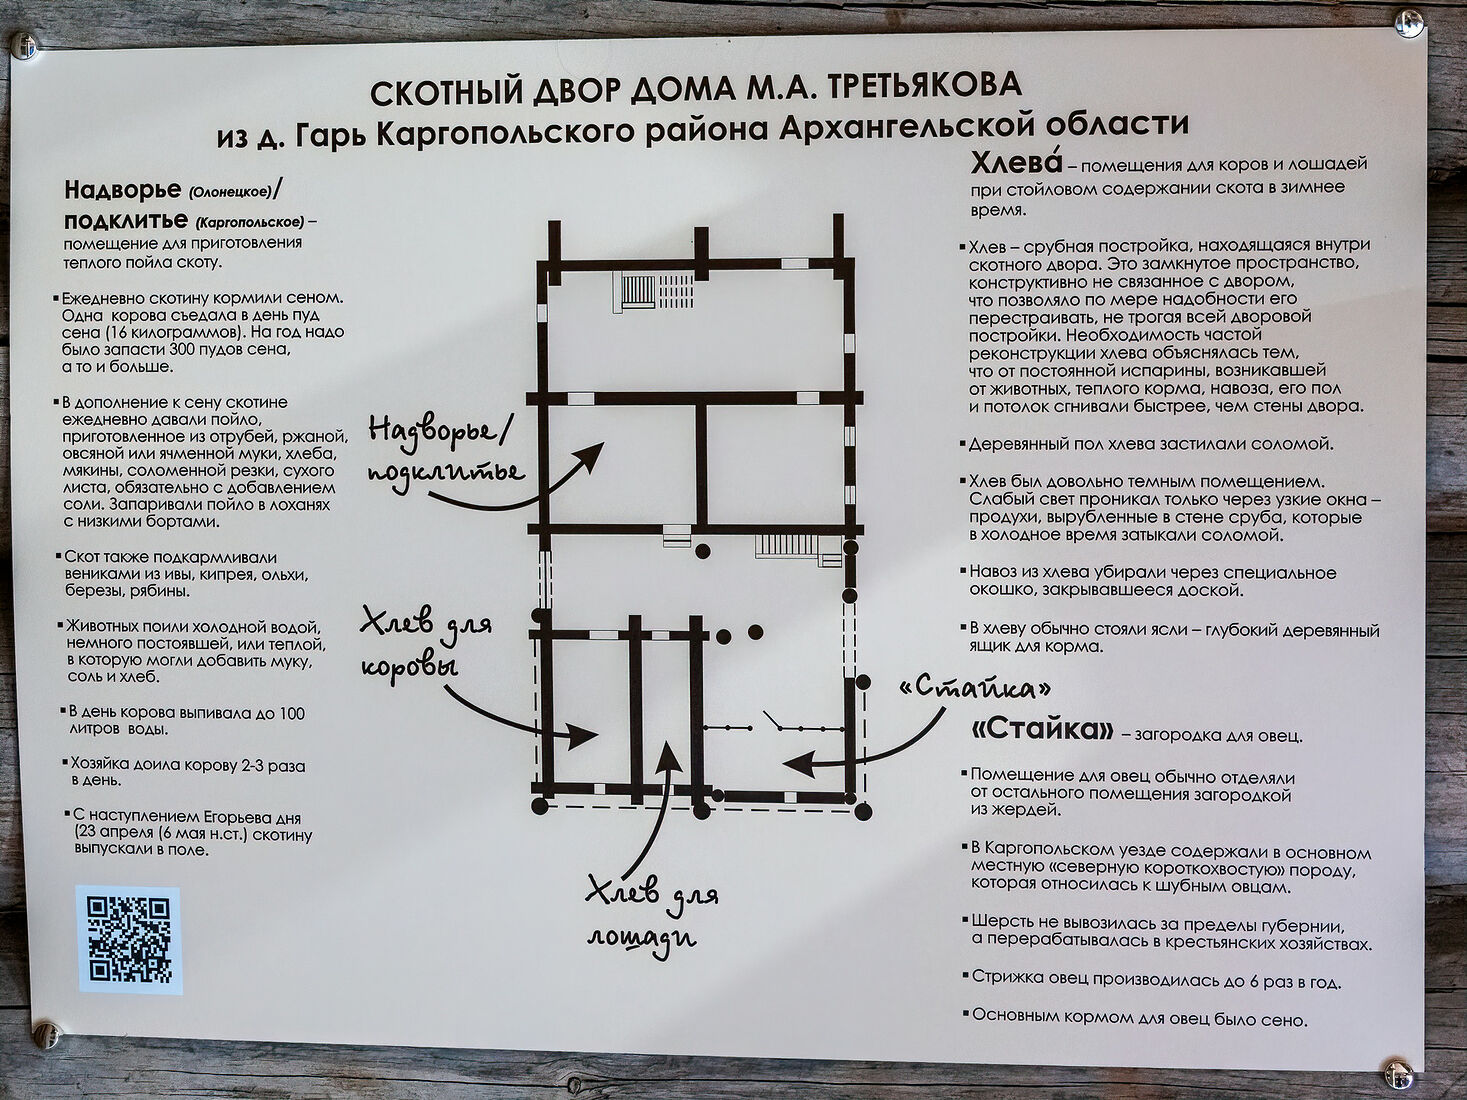 СКОТНЫЙ ДВОР ДОМА М.А. ТРЕТЬЯКОВА
из д. Гарь Каргопольского района Архангельской области
Надворье (Олонецкое)/
подклитье (Каргопольское) –
помещение для приготовления
теплого пойла скоту.
▪Ежедневно скотину кормили сеном.
Одна корова съедала в день пуд
сена (16 килограммов). На год надо
было запасти 300 пудов сена,
а то и больше.
▪В дополнение к сену скотине
ежедневно давали пойло,
приготовленное из отрубей, ржаной,
овсяной или ячменной муки, хлеба,
мякины, соломенной резки, сухого
листа, обязательно с добавлением
соли. Запаривали пойло в лоханях
с низкими бортами.
▪Скот также подкармливали
вениками из ивы, кипрея, ольхи,
березы, рябины.
▪Животных поили холодной водой,
немного постоявшей, или теплой,
в которую могли добавить муку,
соль и хлеб.
▪В день корова выпивала до 100
литров воды.
▪Хозяйка доила корову 2-3 раза
в день.
▪С наступлением Егорьева дня
(23 апреля (6 мая н.ст.) скотину
выпускали в поле.
Надворье/
подклитье
Хлев для
коровы
Хлев для
лошади
«Стайка»
Хлева́ – помещения для коров и лошадей
при стойловом содержании скота в зимнее
время.
▪Хлев – срубная постройка, находящаяся внутри
скотного двора. Это замкнутое пространство,
конструктивно не связанное с двором,
что позволяло по мере надобности его
перестраивать, не трогая всей дворовой
постройки. Необходимость частой
реконструкции хлева объяснялась тем,
что от постоянной испарины, возникавшей
от животных, теплого корма, навоза, его пол
и потолок сгнивали быстрее, чем стены двора.
▪Деревянный пол хлева застилали соломой.
▪Хлев был довольно темным помещением.
Слабый свет проникал только через узкие окна –
продухи, вырубленные в стене сруба, которые
в холодное время затыкали соломой.
▪Навоз из хлева убирали через специальное
окошко, закрывавшееся доской.
▪В хлеву обычно стояли ясли – глубокий деревянный
ящик для корма.
«Стайка» – загородка для овец.
▪Помещение для овец обычно отделяли
от остального помещения загородкой
из жердей.
▪В Каргопольском уезде содержали в основном
местную «северную короткохвостую» породу,
которая относилась к шубным овцам.
▪Шерсть не вывозилась за пределы губернии,
а перерабатывалась в крестьянских хозяйствах.
▪Стрижка овец производилась до 6 раз в год.
▪Основным кормом для овец было сено.